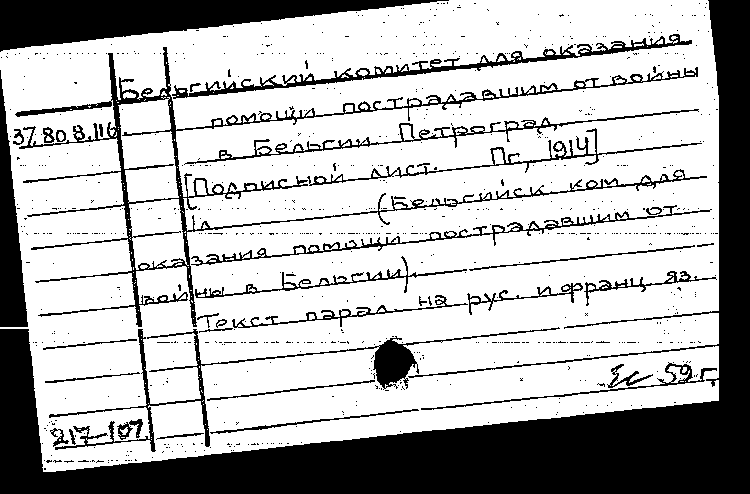 Бельгийский комитет для оказания
37.80.8.116 помощи пострадавшим от войны
в Бельгии. Петроград.
[Подписной лист. Пг., 1914]
1л. (Бельгийск. ком. для
оказания помощи пострадавшим от
войны в Бельгии).
Текст парал. на рус. и франц. яз.
59 г.
217-107